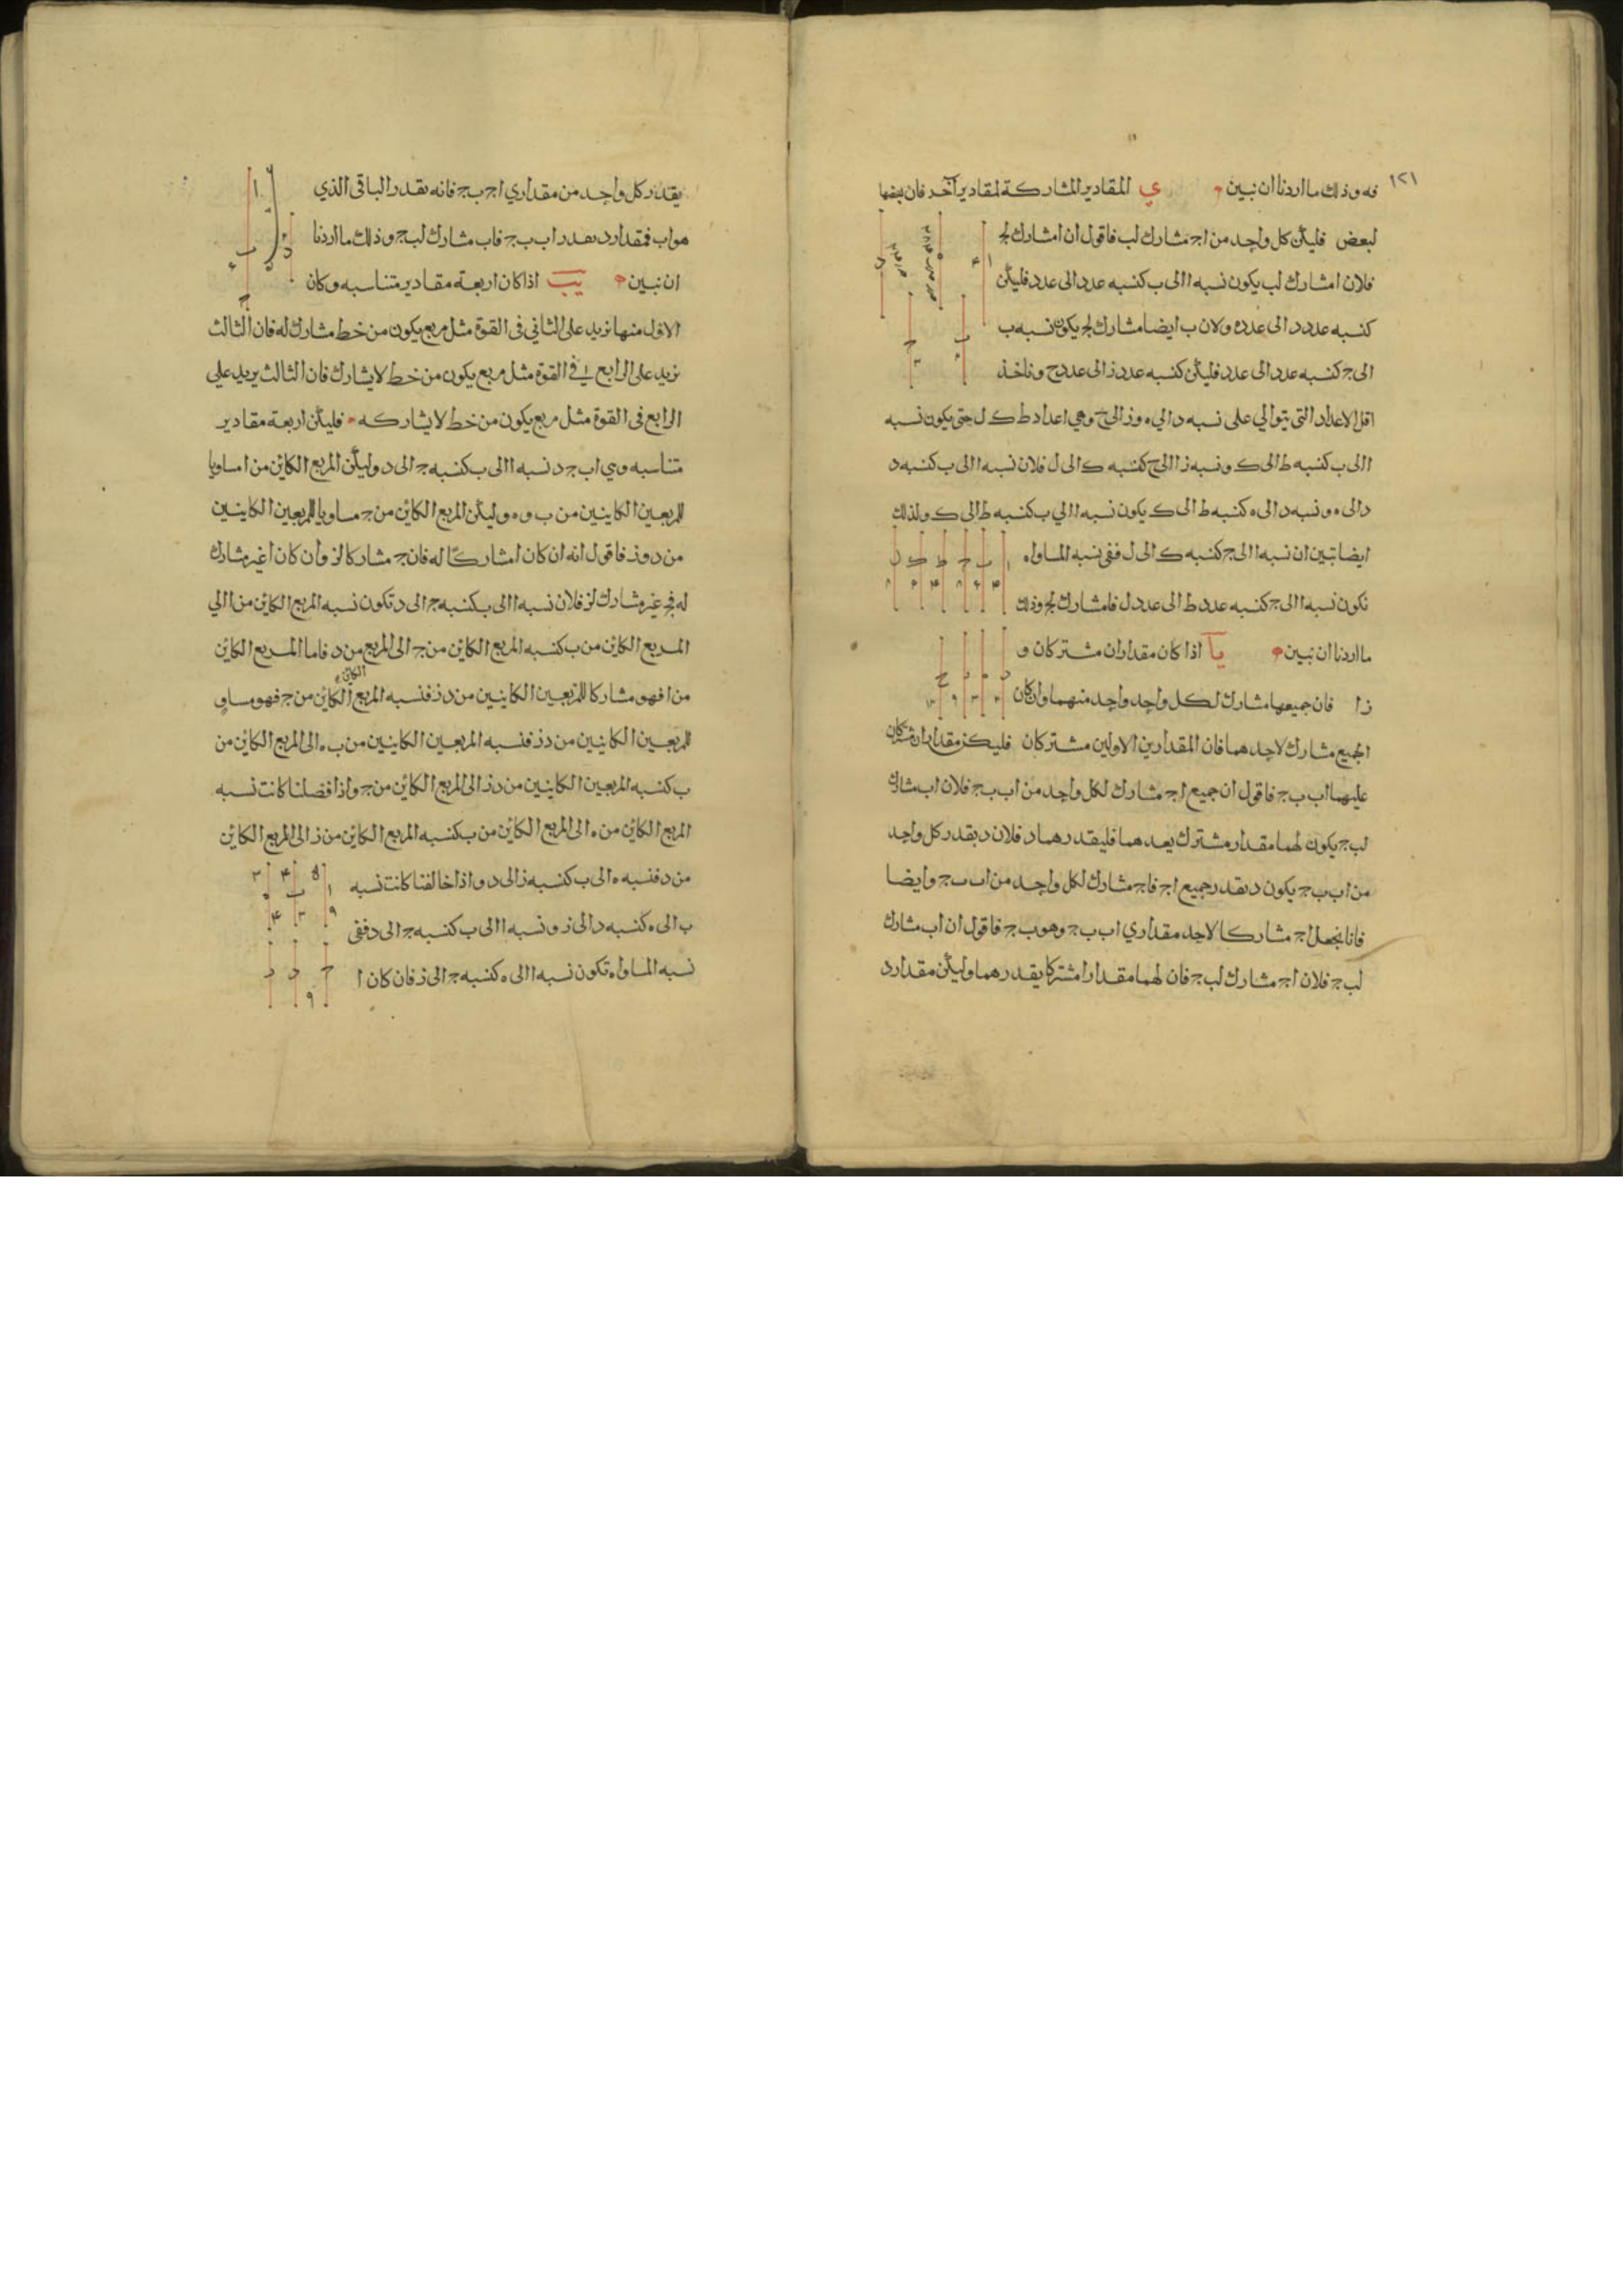 ١٢١
فه وذلك ما اردنا ان نبين ي المقادير المشاركة لمقدار آخر فان بعضها
لبعض فليكن كل واحد من ا ج مشارك لب فاقول ان ا مشارك لج
فلان ا مشارك لب يكون نسبه ا الى ب كنسبه عدد الى عدد فليكن
كنسبه عدد د الى عدد ه ولان ب ايضا مشارك لج يكون نسبه ب
الى ج كنسبه عدد الى عدد فليكن كنسبه عدد ز الى عدد ح وناخذ
اقل الاعداد التى يتوالي على نسبه د الي ه و ز الى ح وهي اعداد ط ك ل حتى يكون نسبه
ا الى ب كنسبه ط الى ك ونسبه ز الى ح كنسبه ك الى ل فلان نسبه ا الى ب كنسبه د
د الى ه ونسبه د الى ه كنسبه ط الى ك يكون نسبه ا الي ب كنسبه ط الى ك ولذلك
ايضا تبين ان نسبه ا الى ج كنسبه ك الى ل ففى نسبه المساواه
تكون نسبه ا الى ج كنسبه عدد ط الى عدد ل فا مشارك لج وذلك
ما اردنا ان نبين يا اذا كان مقداران مشتركان و
زا فان جميعها مشارك لكل واحد واحد منهما وان كان
الجميع مشارك لاحدهما فان المقدارين الاولين مشتركان فليكن مقداران مشتركان
عليهما اب ب ج فاقول ان جميع اج مشارك لكل واحد من اب ب ج فلان اب مشارك
لب ج يكون لهما مقدار مشترك يعدهما فليقدرهما د فلان د يقدر كل واحد
من اب ب ج يكون د يقدر جميع اج فاج مشارك لكل واحد من اب ب ج وايضا
فانا نجعل اج مشاركا لاحد مقداري اب ب ج وهو ب ج فاقول ان اب مشارك
لب ج فلان اج مشارك لب ج فان لهما مقدارا مشتركا يقدرهما وليكن مقدار د
يقدر كل واحد من مقداري اج ب ج فانه يقدر الباقى الذي
هو اب فمقدار د يقدر اب ب ج فاب مشارك لب ج وذلك ما اردنا
ان نبين يب اذا كان اربعة مقادير متناسبه وكان
الاول منها نزيد على الثاني فى القوة مثل مربع يكون من خط مشارك له فان الثالث
نزيد على الرابع فى القوة مثل مربع يكون من خط لا يشارك فان الثالث يريد على
الرابع فى القوة مثل مربع يكون من خط لا يشاركه فليكن اربعة مقادير
متناسبه وي ا ب ج د نسبه ا الى ب كنسبه ج الى د وليكن المربع الكائن من ا مساويا
للمربعين الكاينين من ب و ه وليكن المربع الكائن من ج مساويا للمربعين الكاينين
من د و ز فاقول انه ان كان ا مشاركا له فان ج مشاركا لز وان كان ا غير مشارك
له فج غير مشارك لز فلان نسبه ا الى ب كنسبه ج الى د تكون نسبه المربع الكائن من ا الي
المربع الكائن من ب كنسبه المربع الكائن من ج الى المربع من د فاما المربع الكائن
من ا فهو مشاركا للمربعين الكاينين من د ز فنسبه المربع الكائن من ج فهو مساو
للمربعين الكاينين من د ز فنسبه المربعين الكاينين من ب ه الى المربع الكائن من
ب كنسبه المربعين الكاينين من د ز الى المربع الكائن من ج واذا فصلنا كانت نسبه
المربع الكائن من ه الى المربع الكائن من ب كنسبه المربع الكائن من ز الى المربع الكائن
من د فنسبه ه الى ب كنسبه ز الى د واذا خالفنا كانت نسبه
ب الى ه كنسبه د الى ز ونسبه ا الى ب كنسبه ج الى د ففى
نسبه المساواه تكون نسبه ا الى ه كنسبه ج الى ز فان كان ا